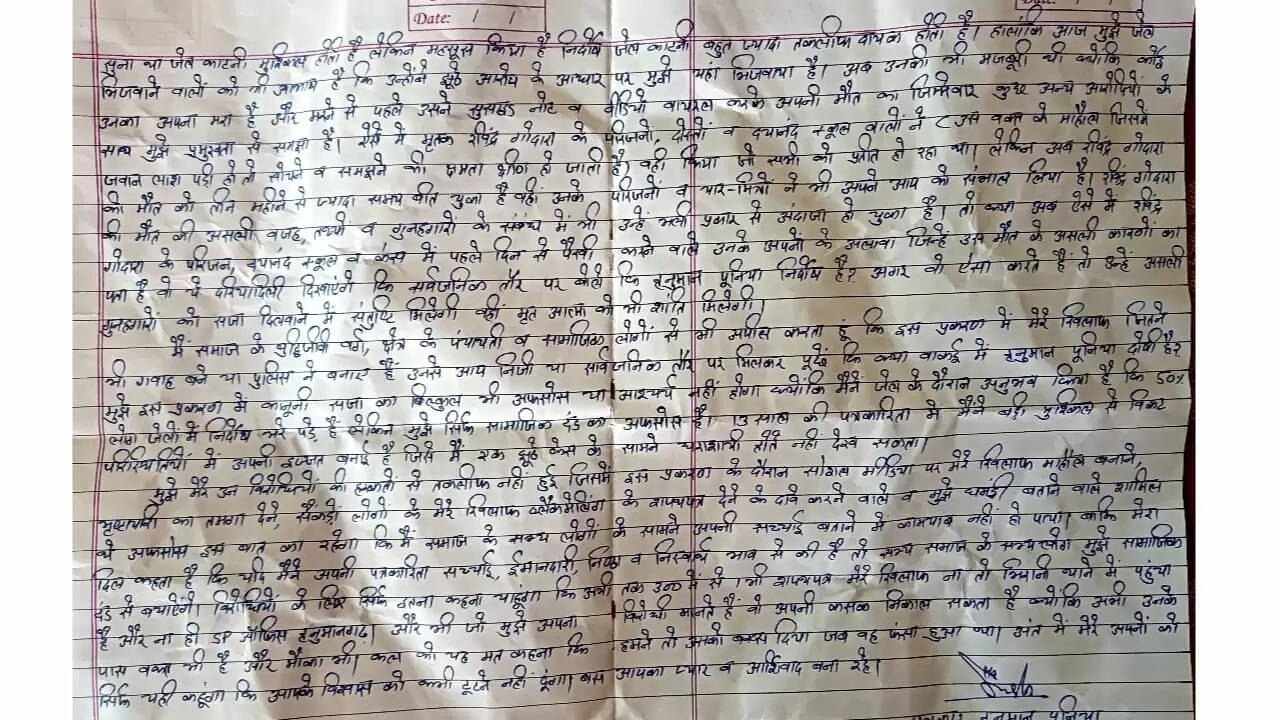 Date: / /
सुना था जेल काटनी मुश्किल होती है लेकिन महसूस किया है निर्दोष जेल काटनी बहुत ज्यादा तकलीफ दायक होती है। हालांकि आज मुझे जेल
भिजवाने वालों को भी आभास है कि उन्होंने झूठे आरोप के आधार पर मुझे यहां भिजवाया है। अब उनकी भी मजबूरी थी क्योंकि कोई
उनका अपना मरा है और मरने से पहले उसने सुसाइड नोट व वीडियो वायरल करके अपनी मौत का जिम्मेवार कुछ अन्य आरोपियों के
साथ मुझे प्रमुखता से समझा है। ऐसे में मृतक रविंद्र गोदारा के परिजनों, दोस्तों व दयानंद स्कूल वालों ने (उस वक्त के माहौल जिसमें
जवान लाश पड़ी हो तो सोचने व समझने की क्षमता क्षीण हो जाती है) वही किया जो सभी को प्रतीत हो रहा था। लेकिन अब रविंद्र गोदारा
की मौत को तीन महीने से ज्यादा समय बीत चुका है वहीं उनके परिजनों व यार-मित्रों ने भी अपने आप को संभाल लिया है। रविंद्र गोदारा
की मौत की असली वजह, तथ्यों व गुनहगारों के संबंध में भी उन्हें भली प्रकार से अंदाजा हो चुका है। तो क्या अब ऐसे में रविंद्र
गोदारा के परिजन, दयानंद स्कूल व केस में पहले दिन से पैरवी करने वाले उनके अपनों के अलावा जिन्हें उस मौत के असली कारणों का
पता है वो ये दरियादिली दिखाएंगे कि सार्वजनिक तौर पर बोले कि हनुमान पूनिया निर्दोष है? अगर वो ऐसा करते हैं तो उन्हें असली
गुनहगारों को सजा दिलवाने में संतुष्टि मिलेगी वहीं मृत आत्मा को भी शांति मिलेगी।
मैं समाज के बुद्धिजीवी वर्ग, क्षेत्र के पंचायती व सामाजिक लोगों से भी अपील करता हूं कि इस प्रकरण में मेरे खिलाफ जितने
भी गवाह बने या पुलिस ने बनाए हैं उनसे आप निजी या सार्वजनिक तौर पर मिलकर पूछे कि क्या वाकई में हनुमान पूनिया दोषी है?
मुझे इस प्रकरण में कानूनी सजा का बिल्कुल भी अफसोस या आश्चर्य नहीं होगा क्योंकि मैंने जेल के दौरान अनुभव किया है कि 50%
लोग जेलों में निर्दोष भरे पड़े हैं लेकिन मुझे सिर्फ सामाजिक दंड का अफसोस है। 13 साल की पत्रकारिता में मैंने बड़ी मुश्किल से विकट
परिस्थितियों में अपनी इज्जत बनाई है जिसे मैं एक झूठे केस के सामने धराशायी होते नहीं देख सकता।
मुझे मेरे उन विरोधियों की हरकतों से तकलीफ नहीं हुई जिसमें इस प्रकरण के दौरान सोशल मीडिया पर मेरे खिलाफ माहौल बनाने,
भ्रष्टाचारी का तमगा देने, सैंकड़ों लोगों के मेरे खिलाफ ब्लैकमेलिंग के शपथपत्र देने के दावे करने वाले व मुझे घमंडी बताने वाले शामिल
थे अफसोस इस बात का रहेगा कि मैं समाज के सभ्य लोगों के सामने अपनी सच्चाई बताने में कामयाब नहीं हो पाया। बाकि मेरा
दिल कहता है कि यदि मैंने अपनी पत्रकारिता सच्चाई, ईमानदारी, निष्ठा व निस्वार्थ भाव से की है तो सभ्य समाज के सभ्य लोग मुझे सामाजिक
दंड से बचाएंगे। विरोधियों के लिए सिर्फ इतना कहना चाहूंगा कि अभी तक 300 में से 1 भी शपथपत्र मेरे खिलाफ ना तो भिरानी थाने में पहुंचा
है और ना ही SP ऑफिस हनुमानगढ़। और भी जो मुझे अपना विरोधी मानते हैं वो अपनी कसक निकाल सकता है क्योंकि अभी उनके
पास वक्त भी है और मौका भी। कल को यह मत कहना कि हमने तो उसको बख्स दिया जब वह फंसा हुआ था। अंत में मेरे अपनों को
सिर्फ यही कहूंगा कि आपके विश्वास को कभी टूटने नहीं दूंगा। बस आपका प्यार व आर्शिवाद बना रहे।
पत्रकार हनुमान पूनिया